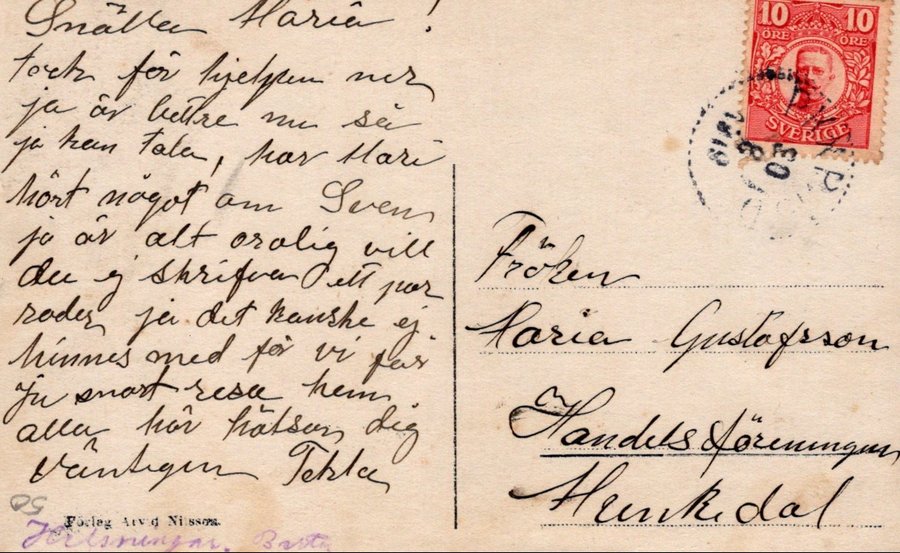 Snälla Maria!
tack för hjelpen ner
ja är bettre nu så
ja kan tala, har Mari
hört något om Sven
ja är alt orolig vill
du ej skrifva ett par
rader ja det kanske ej
hinnes med för vi får
ju snart resa hem
alla här hälsar dig
Väntigen Tekla
Förlag Arvid Nilsson.
10 10
ÖRE ÖRE
SVERIGE
Fröken
Maria Gustafsson
Handelsföreningen
Munkedal